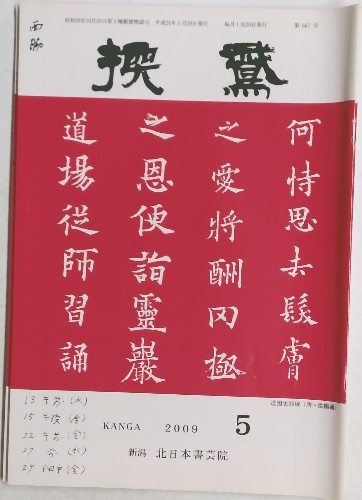 西脇
昭和28年10月20日第3種郵便物認可 平成21年5月20日発行 毎月1回20日発行 第667号
鵞揆
何恃思去髮膚
之愛將酬罔極
之恩便詣靈巖
道場從師習誦
道因法師碑(唐・欧陽通)
KANGA 2009 5
新潟 北日本書芸院
13 午前(水)
15 午後(金)
22 午前(金)
27 前(水)
29